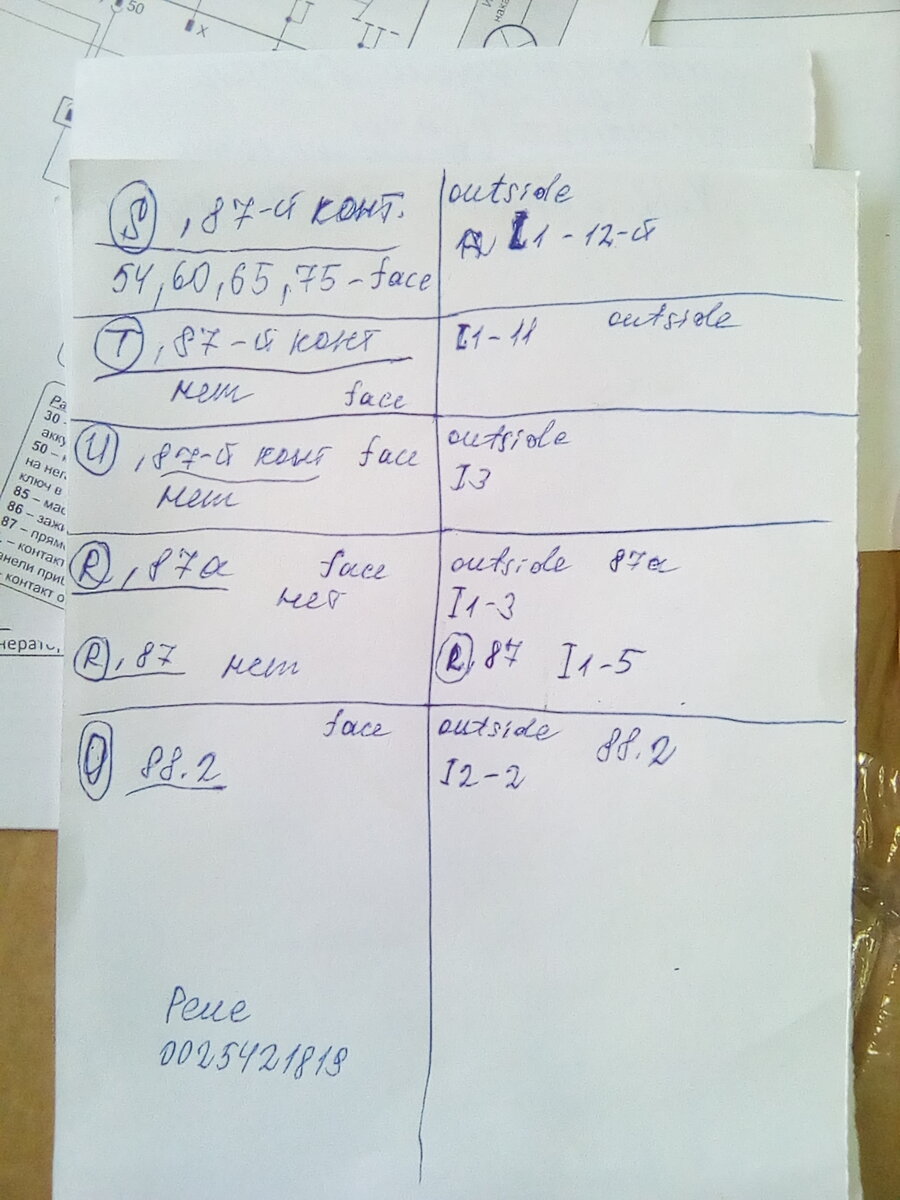 50
x
S, 87-й конт.
54, 60, 65, 75 - face
outside
I1 - 12-й
T, 87-й конт
нет face
I1-11 outside
U, 87-й конт face
нет
outside
I3
R, 87а face
нет
outside 87а
I1-3
R, 87 нет
R, 87 I1-5
face
88.2
outside 88.2
I2-2
Реле
0025421819
30
50 –
на нег
ключ в
85 – мас
86 – зажи
87 – прям
– контакт
анели приб
контакт о